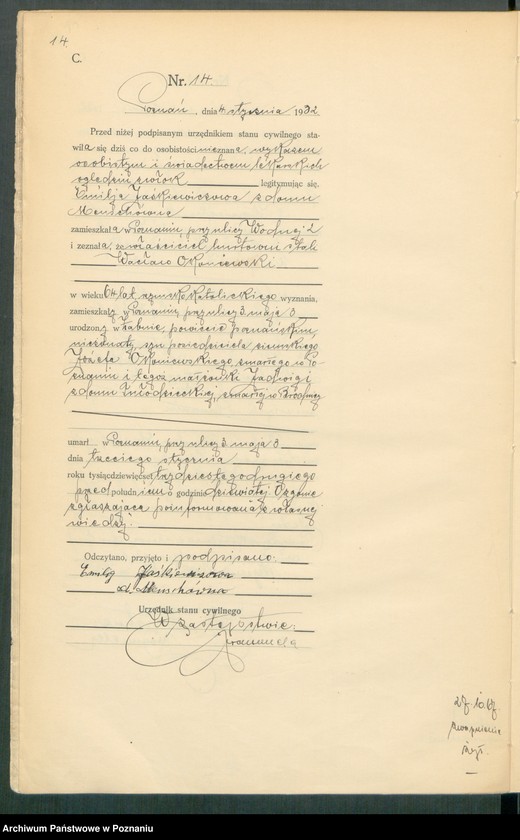 14.
C.
Nr. 14.
Poznań, dnia 4 stycznia 1932
Przed niżej podpisanym urzędnikiem stanu cywilnego sta-
wiła się dziś co do osobistości nieznana, wykazem
osobistym i świadectwem lekarskich
oględzin zwłok legitymując się,
Emilja Jaśkiewiczowa z domu
zamieszkała w Poznaniu przy ulicy Wodnej 2
i zeznała, że właściciel hurtowni stali
Wacław Okoniewski
w wieku 64 lat, rzymsko katolickiego wyznania,
zamieszkały w Poznaniu przy ulicy 3 maja 3
urodzony w Żabnie, powiecie
nieżonaty, syn posiedziciela ziemskiego
Józefa Okoniewskiego, zmarłego w Po-
znaniu i tegoż małżonki Jadwigi
z domu zmarłej w
umarł w Poznaniu, przy ulicy 3 maja 3
dnia trzeciego stycznia
roku tysiącdziewięćset trzydziestego drugiego
przed południem o godzinie dziewiątej. O zgonie
zgłaszająca poinformowana z własnej
wiedzy.
Odczytano, przyjęto i podpisano.
Jaśkiewiczowa
Urzędnik stanu cywilnego
W zastępstwie:
Archiwum Państwowe w Poznaniu